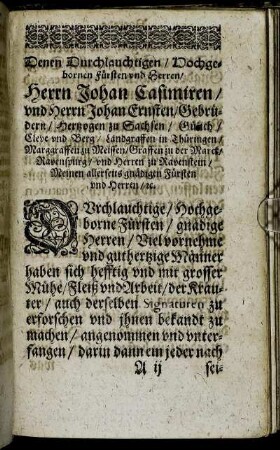 Denen Durchlauchtigen / Hochge-
bornen Fürsten vnd Herren /
Herrn Johan Casimiren /
vnd Herrn Johan Ernsten / Gebrü-
dern / Hertzogen zu Sachsen / Gülich /
Cleve vnd Berg / Landgraffen in Thüringen /
Marggraffen zu Meissen / Graffen zu der Marck /
Ravenspurg / vnd Herren zu Ravenstein /
Meinen allerseits gnädigen Fürsten
vnd Herren / ec.
DVrchlauchtige / Hochge-
borne Fürsten / gnädige
Herren / Viel vornehme
vnd guthertzige Männer
haben sich hefftig vnd mit grosser
Mühe / Fleiß vnd Arbeit / der Kräu-
ter / auch derselben Signaturen zu
erforschen vnd jhnen bekandt zu
machen / angenommen vnd vnter-
fangen / darin dann ein jeder nach
A ij sei-